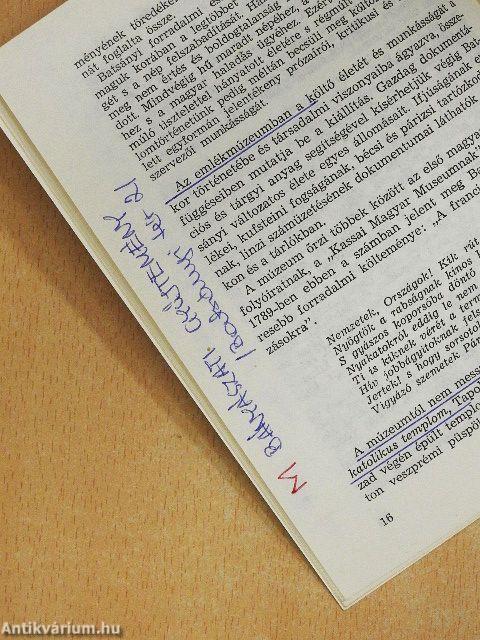 ményének töredéke
nát foglalta össze.
Batsányi forradalmi és
maguk korában a legtöbbet
gét s a nép felszabadítását. Ha
meg nem értés és boldogtalanság
dott. Mindvégig hű maradt népéhez, a
hez s a magyar haladás ügyéhez. Ezért
múló tisztelettel hányatott életére s régmúlt
lomtörténetünk pedig méltán becsüli meg költő
lett egyformán jelentékeny prózaírói, kritikusi és
szervezői munkásságát.
Az emlékmúzeumban a költő életét és munkásságát a
kor történetébe és társadalmi viszonyaiba ágyazva, össze-
függéseiben mutatja be a kiállítás. Gazdag dokumentá-
ciós és tárgyi anyag segítségével kísérhetjük végig Bat-
sányi változatos élete egyes állomásait. Ifjúságának em
lékei, kufsteini fogságának, bécsi és párizsi tartózkod
nak, linzi száműzetésének dokumentumai láthatók
kon és a tárlókban.
A múzeum őrzi többek között az első magya
folyóiratnak, a „Kassai Magyar Museumnak"
1789-ben ebben a számban jelent meg Ba
resebb forradalmi költeménye: „A franci
zásokra".
Nemzetek, Országok! Kik rút
Nyögtök a rabságnak kínos
S gyászos koporsóba döntő
Nyakatokról eddig le nem
Ti is kiknek vérét a term
Hív jobbágyitoknak fels
Jertek! s hogy sorsotok
Vigyázó szemetek Pár
A múzeumtól nem mess
katolikus templom, Tapol
zad végén épült templo
ton veszprémi püspö
16
M BAKÁSZATI GYŰJTEMÉNY
Batsányi tér 2/
Antikvárium.hu